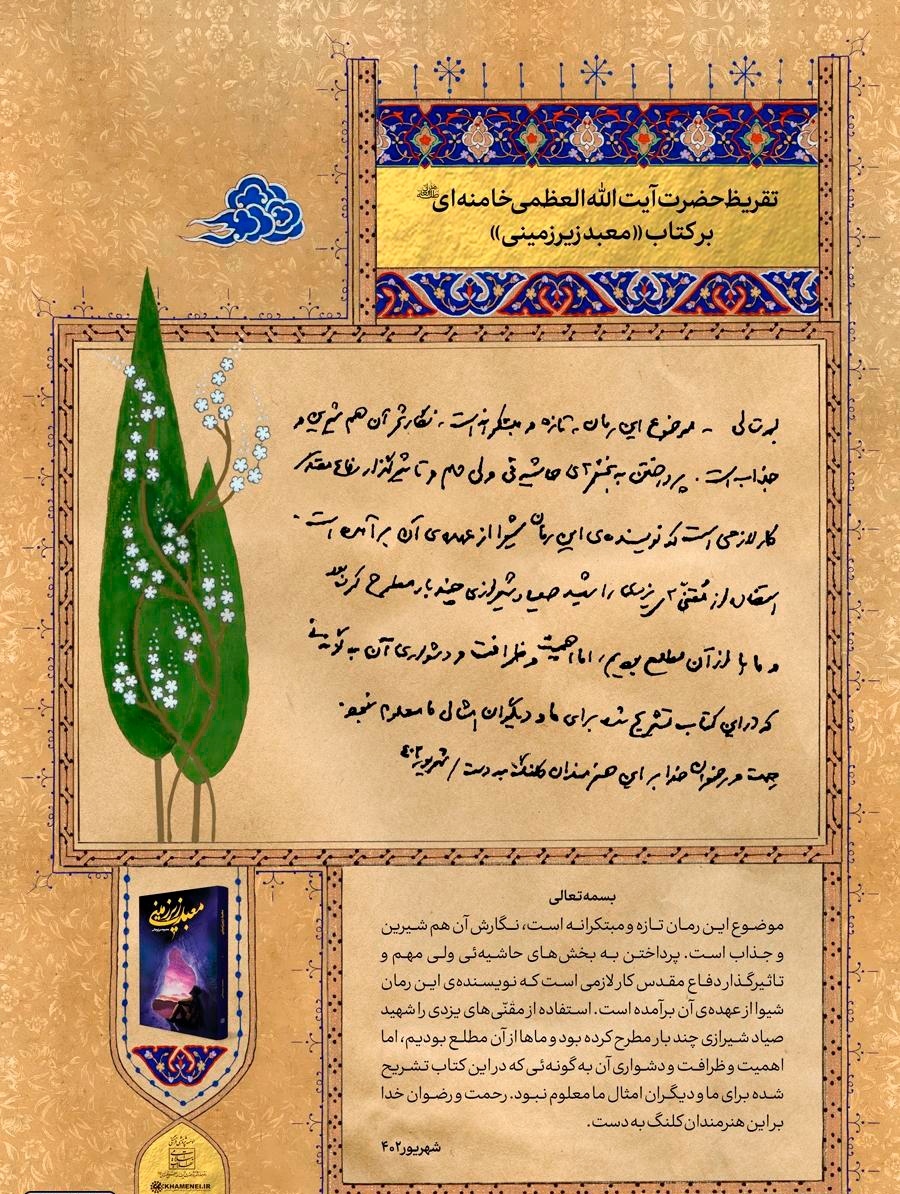 تقریظ حضرت آیت الله العظمی خامنه ای
بر کتاب ((معبد زیرزمینی))
بسمه تعالی - موضوع این رمان، تازه و مبتکرانه است، نگارش آن هم شیرین و
جذاب است. پرداختن به بخش‌های حاشیه‌ئی ولی مهم و تاثیرگذار دفاع مقدس
کار لازمی است که نویسنده‌ی این رمان شیوا از عهده‌ی آن برآمده است.
استفاده از مقنّی‌های یزدی را شهید صیاد شیرازی چند بار مطرح کرده بود
و ماها از آن مطلع بودیم، اما اهمیت و ظرافت و دشواری آن به گونه‌ئی
که در این کتاب تشریح شده برای ما و دیگران امثال ما معلوم نبود.
رحمت و رضوان خدا بر این هنرمندان کلنگ به دست / شهریور ۴۰۲
معبد زیرزمینی
بسمه تعالی
موضوع این رمان تازه و مبتکرانه است، نگارش آن هم شیرین
و جذاب است. پرداختن به بخش های حاشیه‌ئی ولی مهم و
تاثیرگذار دفاع مقدس کار لازمی است که نویسنده‌ی این رمان
شیوا از عهده‌ی آن برآمده است. استفاده از مقنّی‌های یزدی را شهید
صیاد شیرازی چند بار مطرح کرده بود و ماها از آن مطلع بودیم، اما
اهمیت و ظرافت و دشواری آن به گونه‌ئی که در این کتاب تشریح
شده برای ما و دیگران امثال ما معلوم نبود. رحمت و رضوان خدا
بر این هنرمندان کلنگ به دست.
شهریور ۴۰۲
KHAMENEI.IR